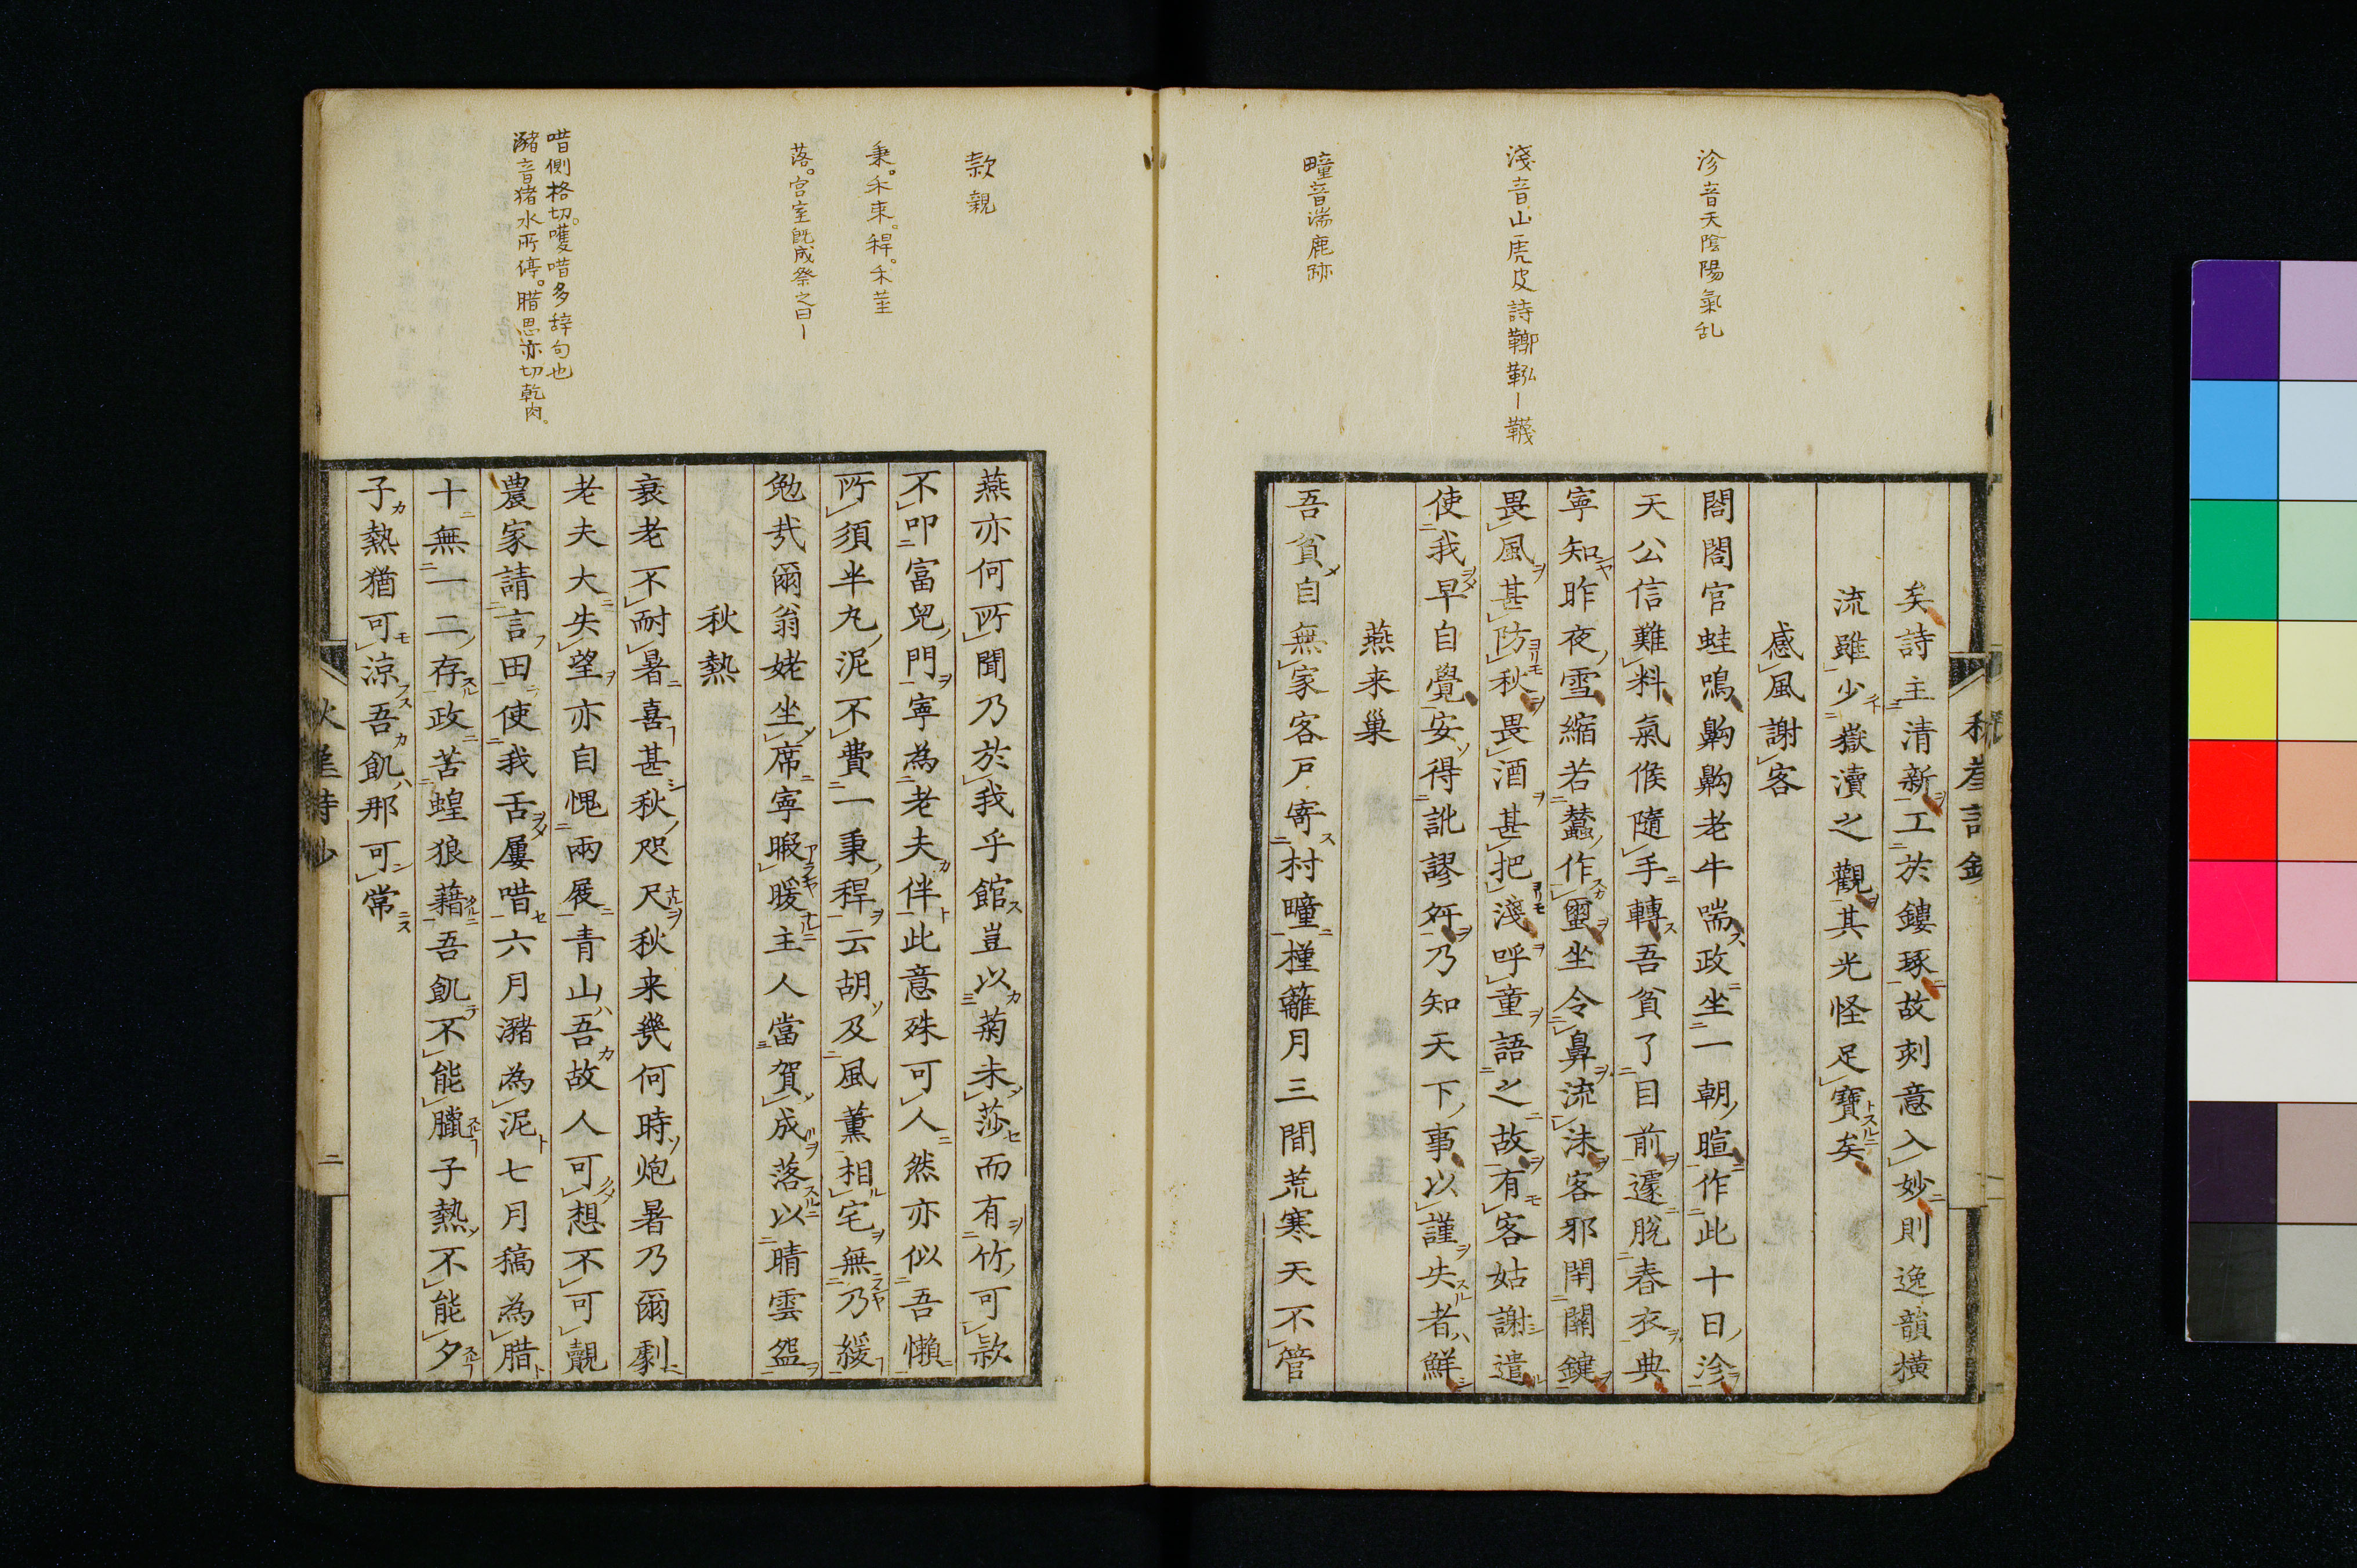 沴音天陰陽氣乱
淺音山虎皮詩鞹鞃ー韈
疃音湍鹿跡
矣詩主清新工於鏤琢故刻意入妙則逸韻橫
流雖少嶽瀆之觀其光怪足寶矣
感風謝客
閤閤官蛙鳴鼾鼾老牛喘政坐一朝暄作此十日沴
天公信難料氣候隨手轉吾貧了目前遽脫春衣典
寧知昨夜雪縮若蠶作蠒坐令鼻流洟客邪閉關鍵
畏風甚防秋畏酒甚把淺呼童語之故有客姑謝遣
使我早自覺安得訛謬舛乃知天下事以謹失者鮮
燕来巢
吾貧自無家客戶寄村疃槿籬月三間荒寒天不管
款親
秉。禾束。稈。禾莖
落。宮室既成祭之曰ー
唶側格切。嚄唶多辞句也
瀦音猪水所停。腊思亦切乾肉。
燕亦何所聞乃於我乎館豈以菊未莎而有竹可款
不叩富兒門寧為老夫伴此意殊可人然亦似吾懶
所須半丸泥不費一秉稈云胡及風薰相宅無乃緩
勉哉爾翁姥坐席寧暇暖主人當賀成落以晴雲盌
秋熱
衰老不耐暑喜甚秋咫尺秋来幾何時炮暑乃爾劇
老夫大失望亦自愧兩屐青山吾故人可想不可覿
農家請言田使我舌屢唶六月瀦為泥七月稿為腊
十無一二存政苦蝗狼藉吾飢不能臘子熱不能夕
子熱猶可涼吾飢那可常
二